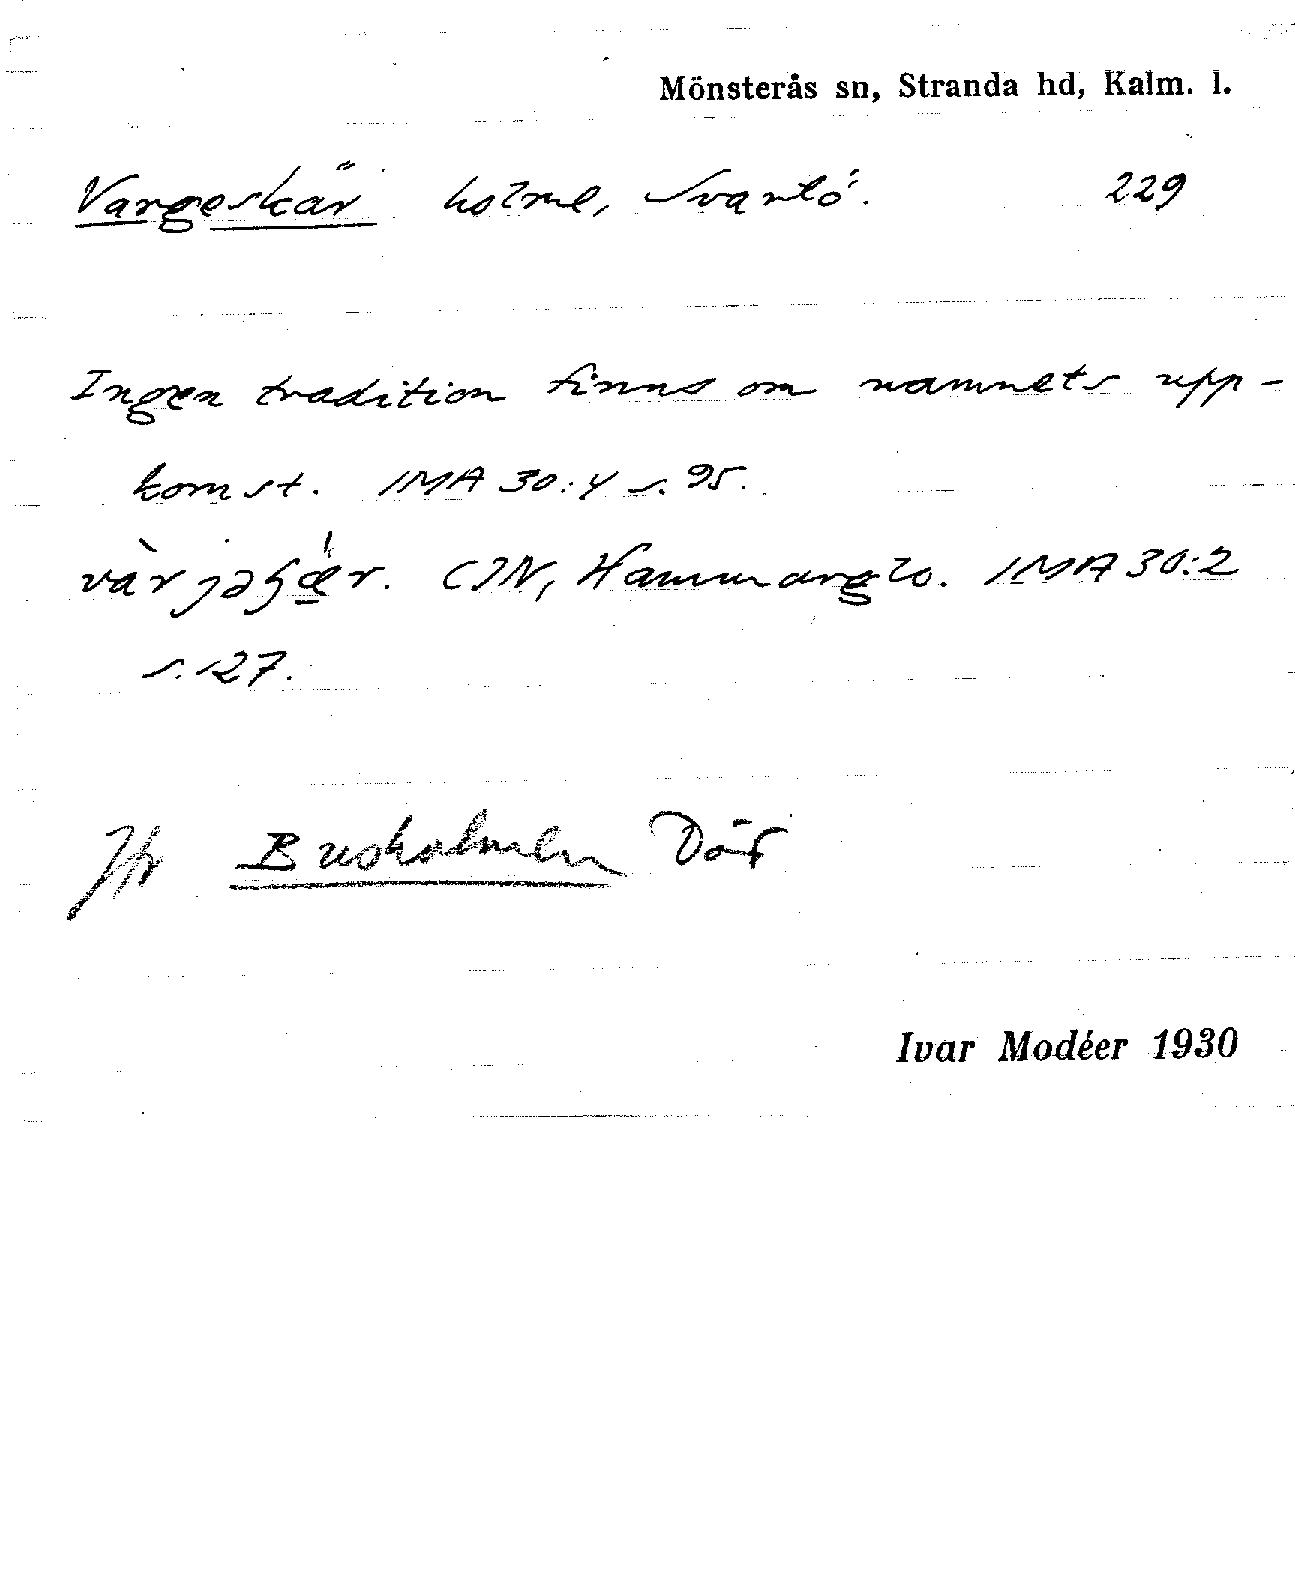 Mönsterås sn, Stranda hd, Kalm. l.
Vargeskär holme, Svartö. 229
Ingen tradition finns om namnets upp-
komst. IMA 30:4 s. 95.
CJN, Hammarglo. IMA 30:2
s. 127.
Jfr Busholmen Döf
Ivar Modéer 1930